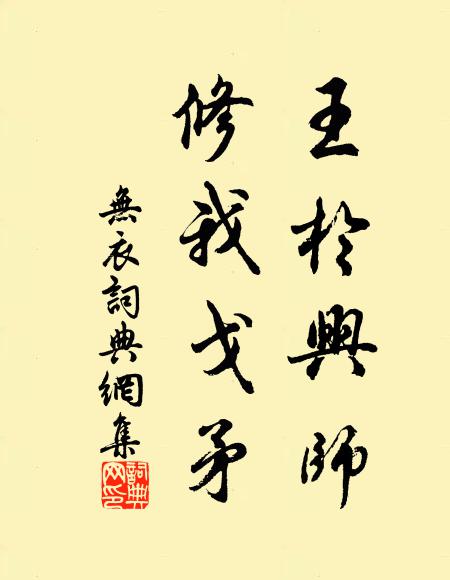 王於興師
修我戈矛
無衣詞典網集
詞典网印